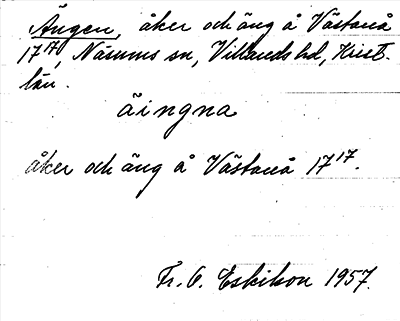 Ängen, åker och äng å Västanå
17¹⁷, Näsums sn, Villands hd, Krist.
län.
äingna
åker och äng å Västanå 17¹⁷.
Fr. O. Eskilson 1957.